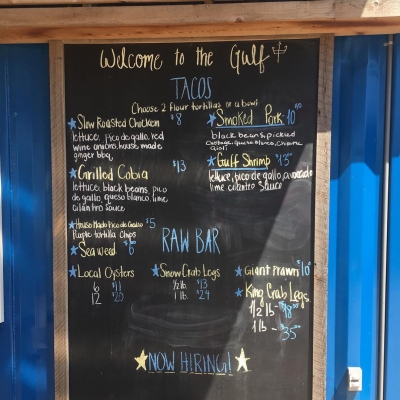 Welcome to the Gulf
TACOS
Choose 2 flour tortillas or a bowl
Slow Roasted Chicken $8
lettuce, pico de gallo, red
wine onions, house made
ginger bbq
Grilled Cobia $13
lettuce, black beans, pico
de gallo, queso blanco, lime
cilantro sauce
Smoked Pork 10
black beans, pickled
cabbage, queso blanco, chipotle
aioli
Gulf Shrimp $13
lettuce, pico de gallo, avocado
lime cilantro sauce
House Made Pico de Gallo $5
Purple tortilla chips
Seaweed $6
RAW BAR
Local Oysters
6 $11
12 $20
Snow Crab Legs
1/2 lb. $13
1 lb. $24
Giant Prawn $10
King Crab Legs
1/2 lb - $18
1 lb - $35
NOW HIRING!